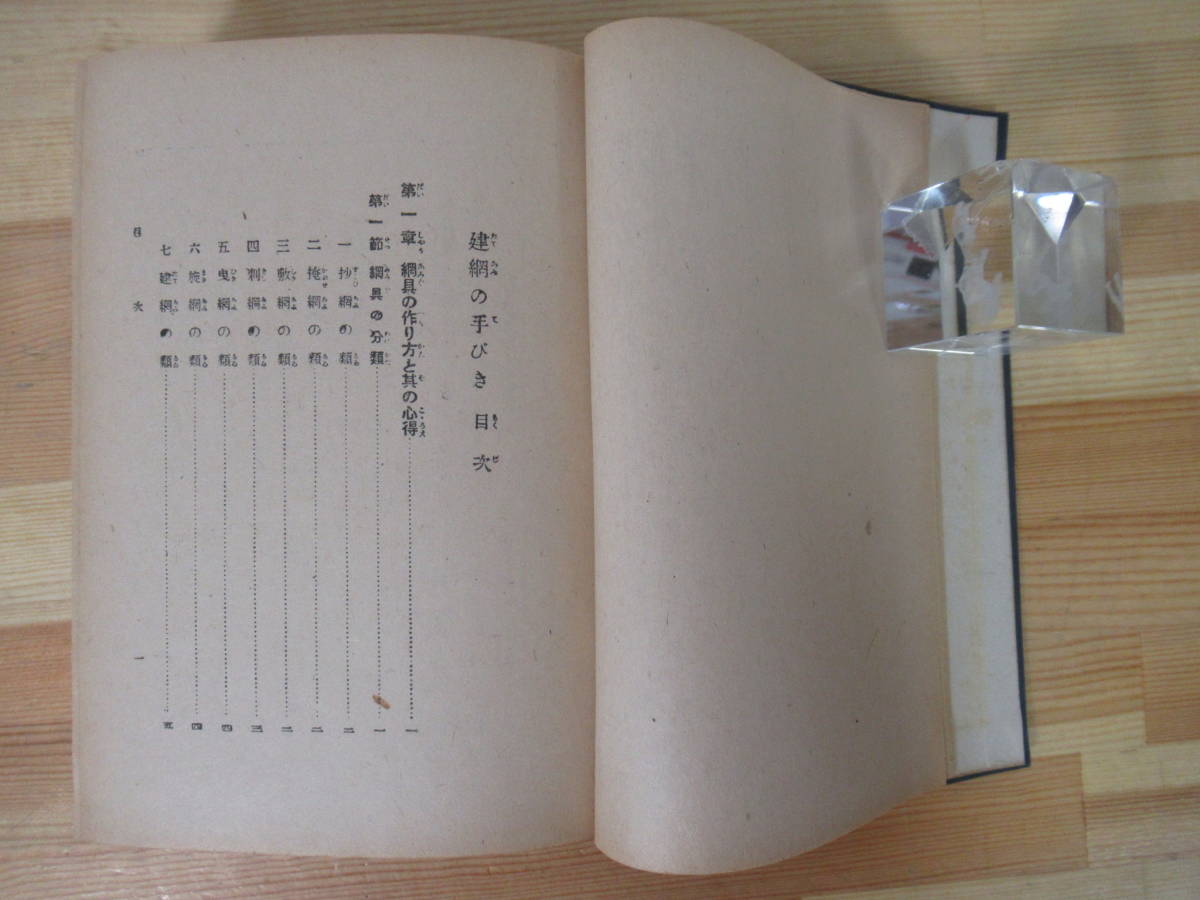 建網の手びき 目次
第一章 網具の作り方と其の心得 一
第一節 網具の分類 一
一 抄網の類 二
二 掩網の類 二
三 敷網の類 二
四 刺網の類 三
五 曳網の類 四
六 旋網の類 四
七 建網の類 五
目次 一